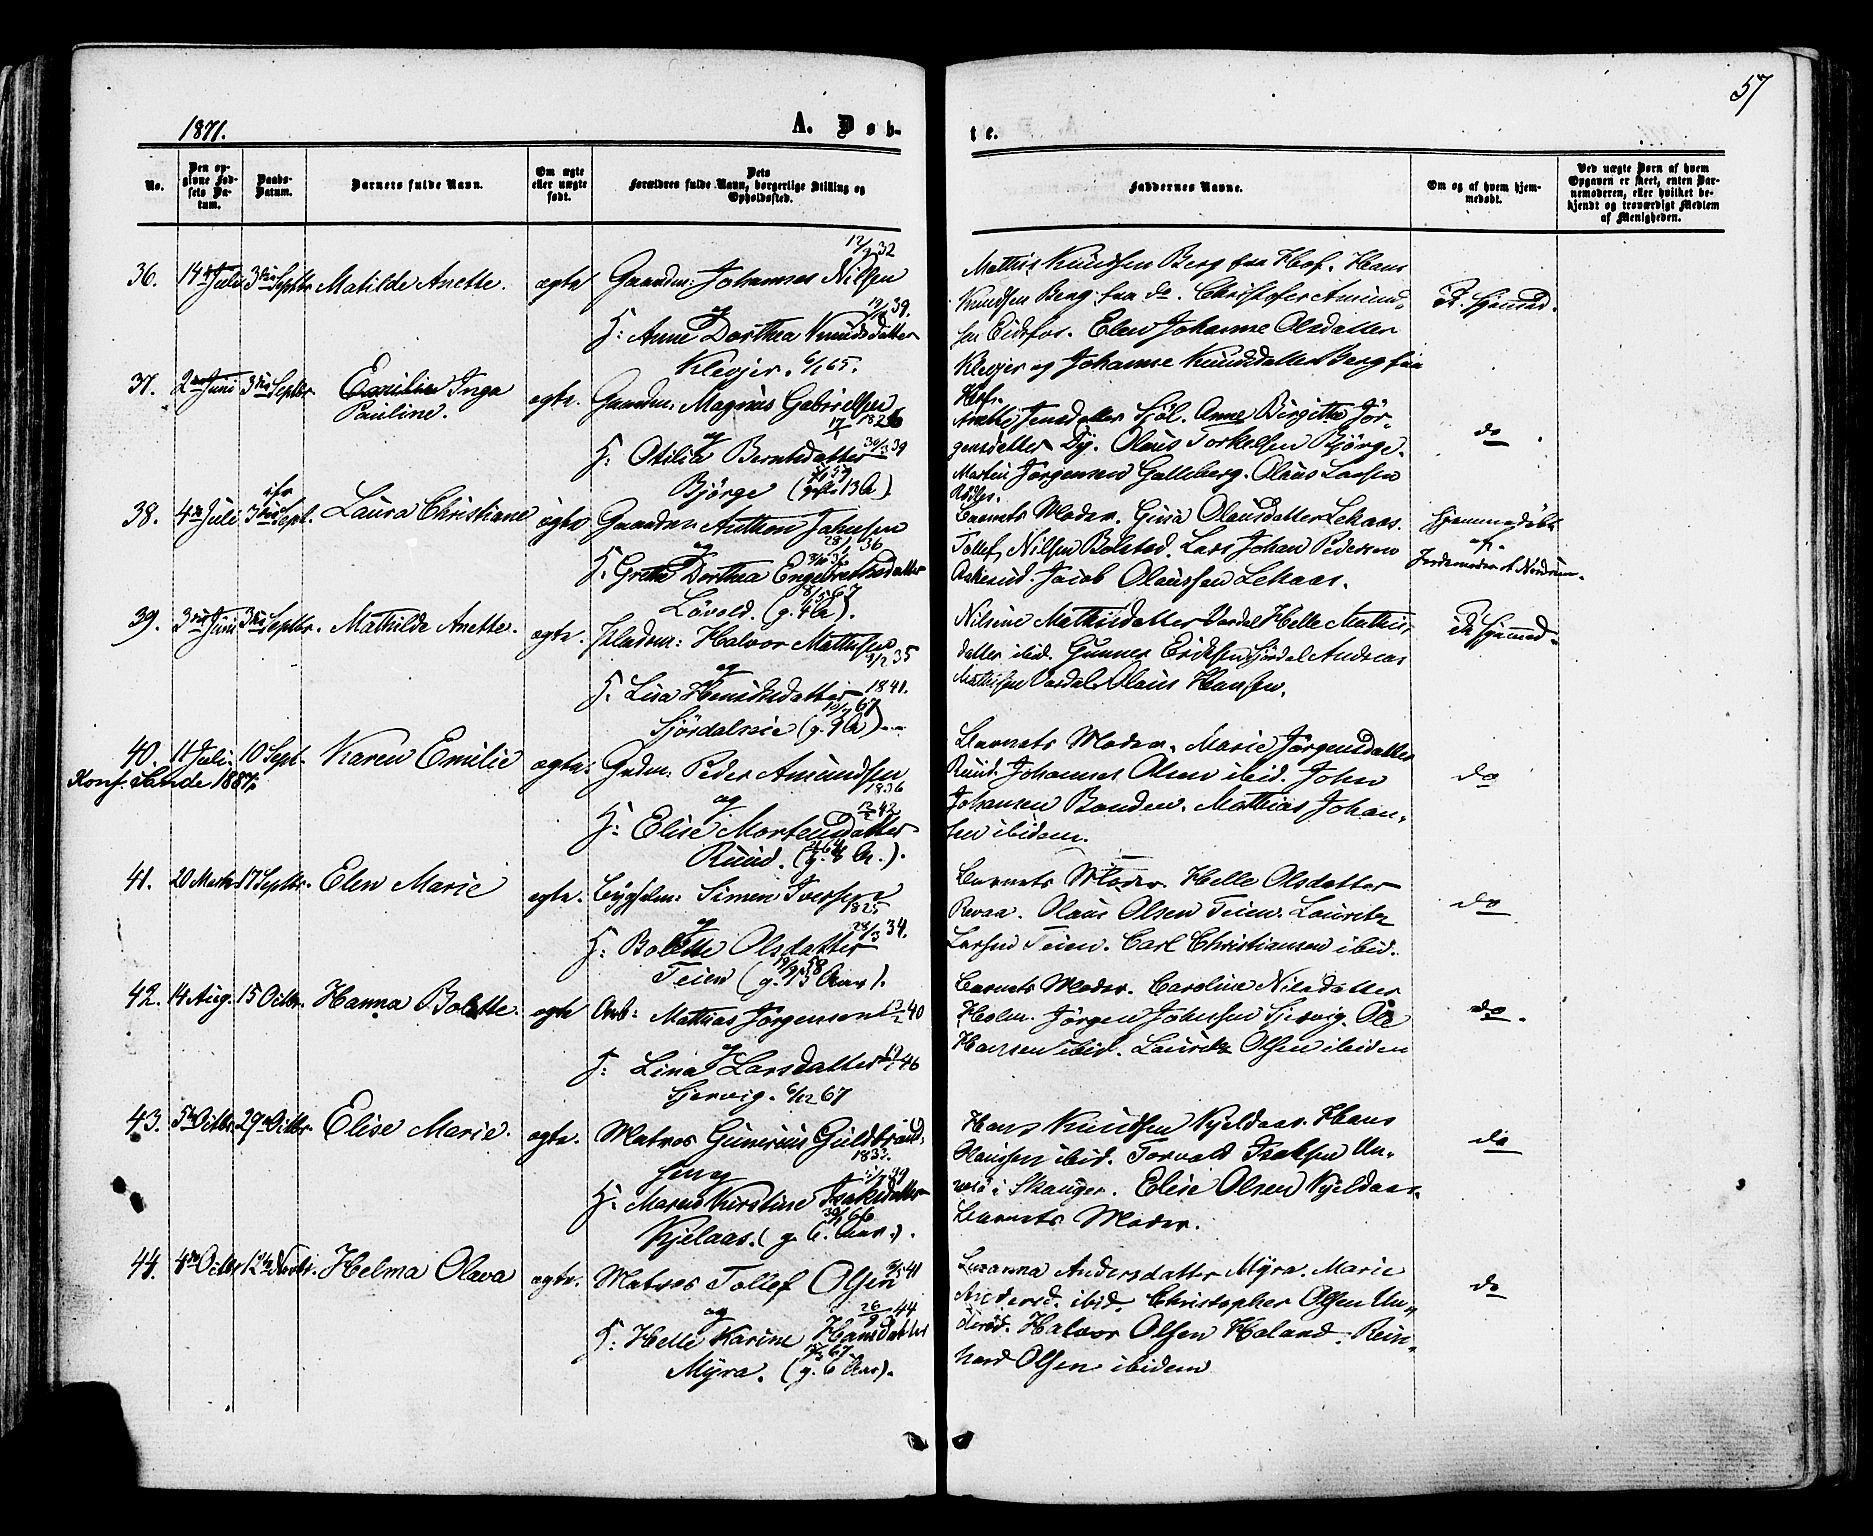 57
1871.
A. Døb-
te.
No.
Den op-
givne Fød-
sels Da-
tum.
Daabs-
Datum.
Barnets fulde Navn.
Om ægte
eller uægte
født.
Dets
Forældres fulde Navn, borgerlige Stilling og
Opholdssted.
Faddernes Navne.
Om og af hvem hjem-
medøbt.
Ved uægte Børn af hvem
Opgaven er skeet, enten Bar-
nemoderen, eller hvilket be-
kjendt og troværdigt Medlem
af Menigheden.
36. 14de Juli 3die Septbr Matilde Anette. ægte Gaardm: Johannes Nilsen
og
H: Anne Dorthea Knudsdatter
Klevjer. 6/1 65.
Mathis Knudsen Berg fra Hof. Hans
Knudsen Berg fra do. Christofer Amund-
sen Eidsfos. Elen Johanne Olsdatter
Klevjer og Johanne Knudsdatter Berg fra
Hof.
37. 2den Juni 3die Septbr. Emilie Inga
Pauline. ægte. Gaardm: Magnus Gabrielsen
og
H: Otilia Berntsdatter 30/3 39
Bjørge (g. 13 A).
Anette Jensdatter Sjøl. Anne Birgitte Jør-
gensdatter Dy. Olaus Torkelsen Bjørge.
Martin Jørgensen Galleberg. Olaus Larsen
do
38. 4de Juli 3die Sept. Laura Christiane ægte Gaardm: Anthon Jansen
og
H. Grethe Dorthea Engebrethsdatter
Løvold. (g. 4 A).
Barnets Moder. Gina Olausdatter Lekaas.
Tollef Nilsen Bolstad. Lars Johan Pedersen
Askerud. Jacob Olaussen Lekaas.
Hjemmedøbt
af
Jordemoder
39. 3die Juni 3die Septbr. Mathilde Anette. ægte. Pladsm: Halvor Mathisen
og
H. Lisa Henriksdatter 1841.
Sjørdalseie (g. 9 A)
Nilsine Mathisdatter Vardal Helle Mathis-
datter ibid. Gunner Eriksen Sjørdal Andreas
Mathisen Vardal. Olaus Hansen.
40. 11 Juli. 10 Sept. Karen Emilie ægte. Grdm: Peder Amundsen
1836
Konf. Sande 1887.
og
H: Elise Mortensdatter
Ruud. (g. 8 A.).
Barnets Moder. Marie Jørgensdatter
Ruud. Johannes Olsen ibid. John
Johansen Bonden. Mathias Johan-
sen ibidem.
do
41. 20 Marts 17 Septbr. Elen Marie ægte. Bygselm: Simen Iversen
1825
og
H: Bolette Olsdatter 28/3 34.
Teien (g. 13 Aar).
Barnets Moder. Helle Olsdatter
Revaa. Olaus Olsen Teien. Lauritz
Larsen Teien. Carl Christiansen ibid.
do
42. 14 Aug. 15 Octbr. Hanna Bolette. ægte Arb: Mathias Jørgensen 13/2 40
og
H: Lina Larsdatter
Sjervig. 6/12 67
Barnets Moder. Caroline Nilsdatter
Holm. Jørgen Johnsen Sjervig. Ole
Hansen ibid. Lauritz Olsen ibidem
do.
43. 5te Octbr. 29de Octbr. Elise Marie. ægte. Matros Gunerius Guldbrand-
1833.
sen og
H: Maren Kirstine Isaksdatter
Kjelaas. (g. 6. Aar).
Hans Knudsen Kjeldaas. Hans
Olaussen ibid. Torvald Isaksen Un-
nerød i Skauger. Elise Olsen Kjeldaas.
Barnets Moder.
do
44. 4de Octbr 12te Novbr. Helma Olava ægte. Matros Tollef Olsen
og 26/9 44
H: Helle Karine Hansdatter
Myra. (g. 6 Aar).
Susanna Andersdatter Myra. Marie
Andersd. ibid. Christopher Olsen Un-
derød. Halvor Olsen Haland. Rein-
hard Olsen ibidem
do